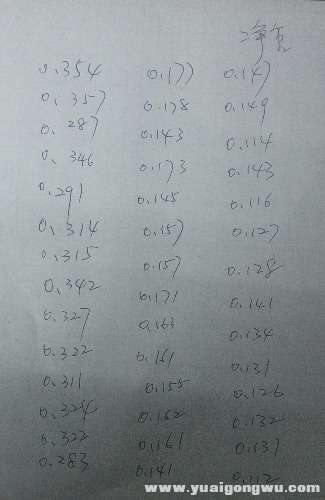 净重
0.354 0.177 0.147
0.357 0.178 0.149
0.287 0.143 0.114
0.346 0.173 0.143
0.291 0.145 0.116
0.314 0.157 0.127
0.315 0.157 0.128
0.342 0.171 0.141
0.327 0.163 0.134
0.322 0.161 0.131
0.311 0.155 0.126
0.324 0.162 0.132
0.322 0.161 0.131
0.283 0.141
www.yuaigongwu.com